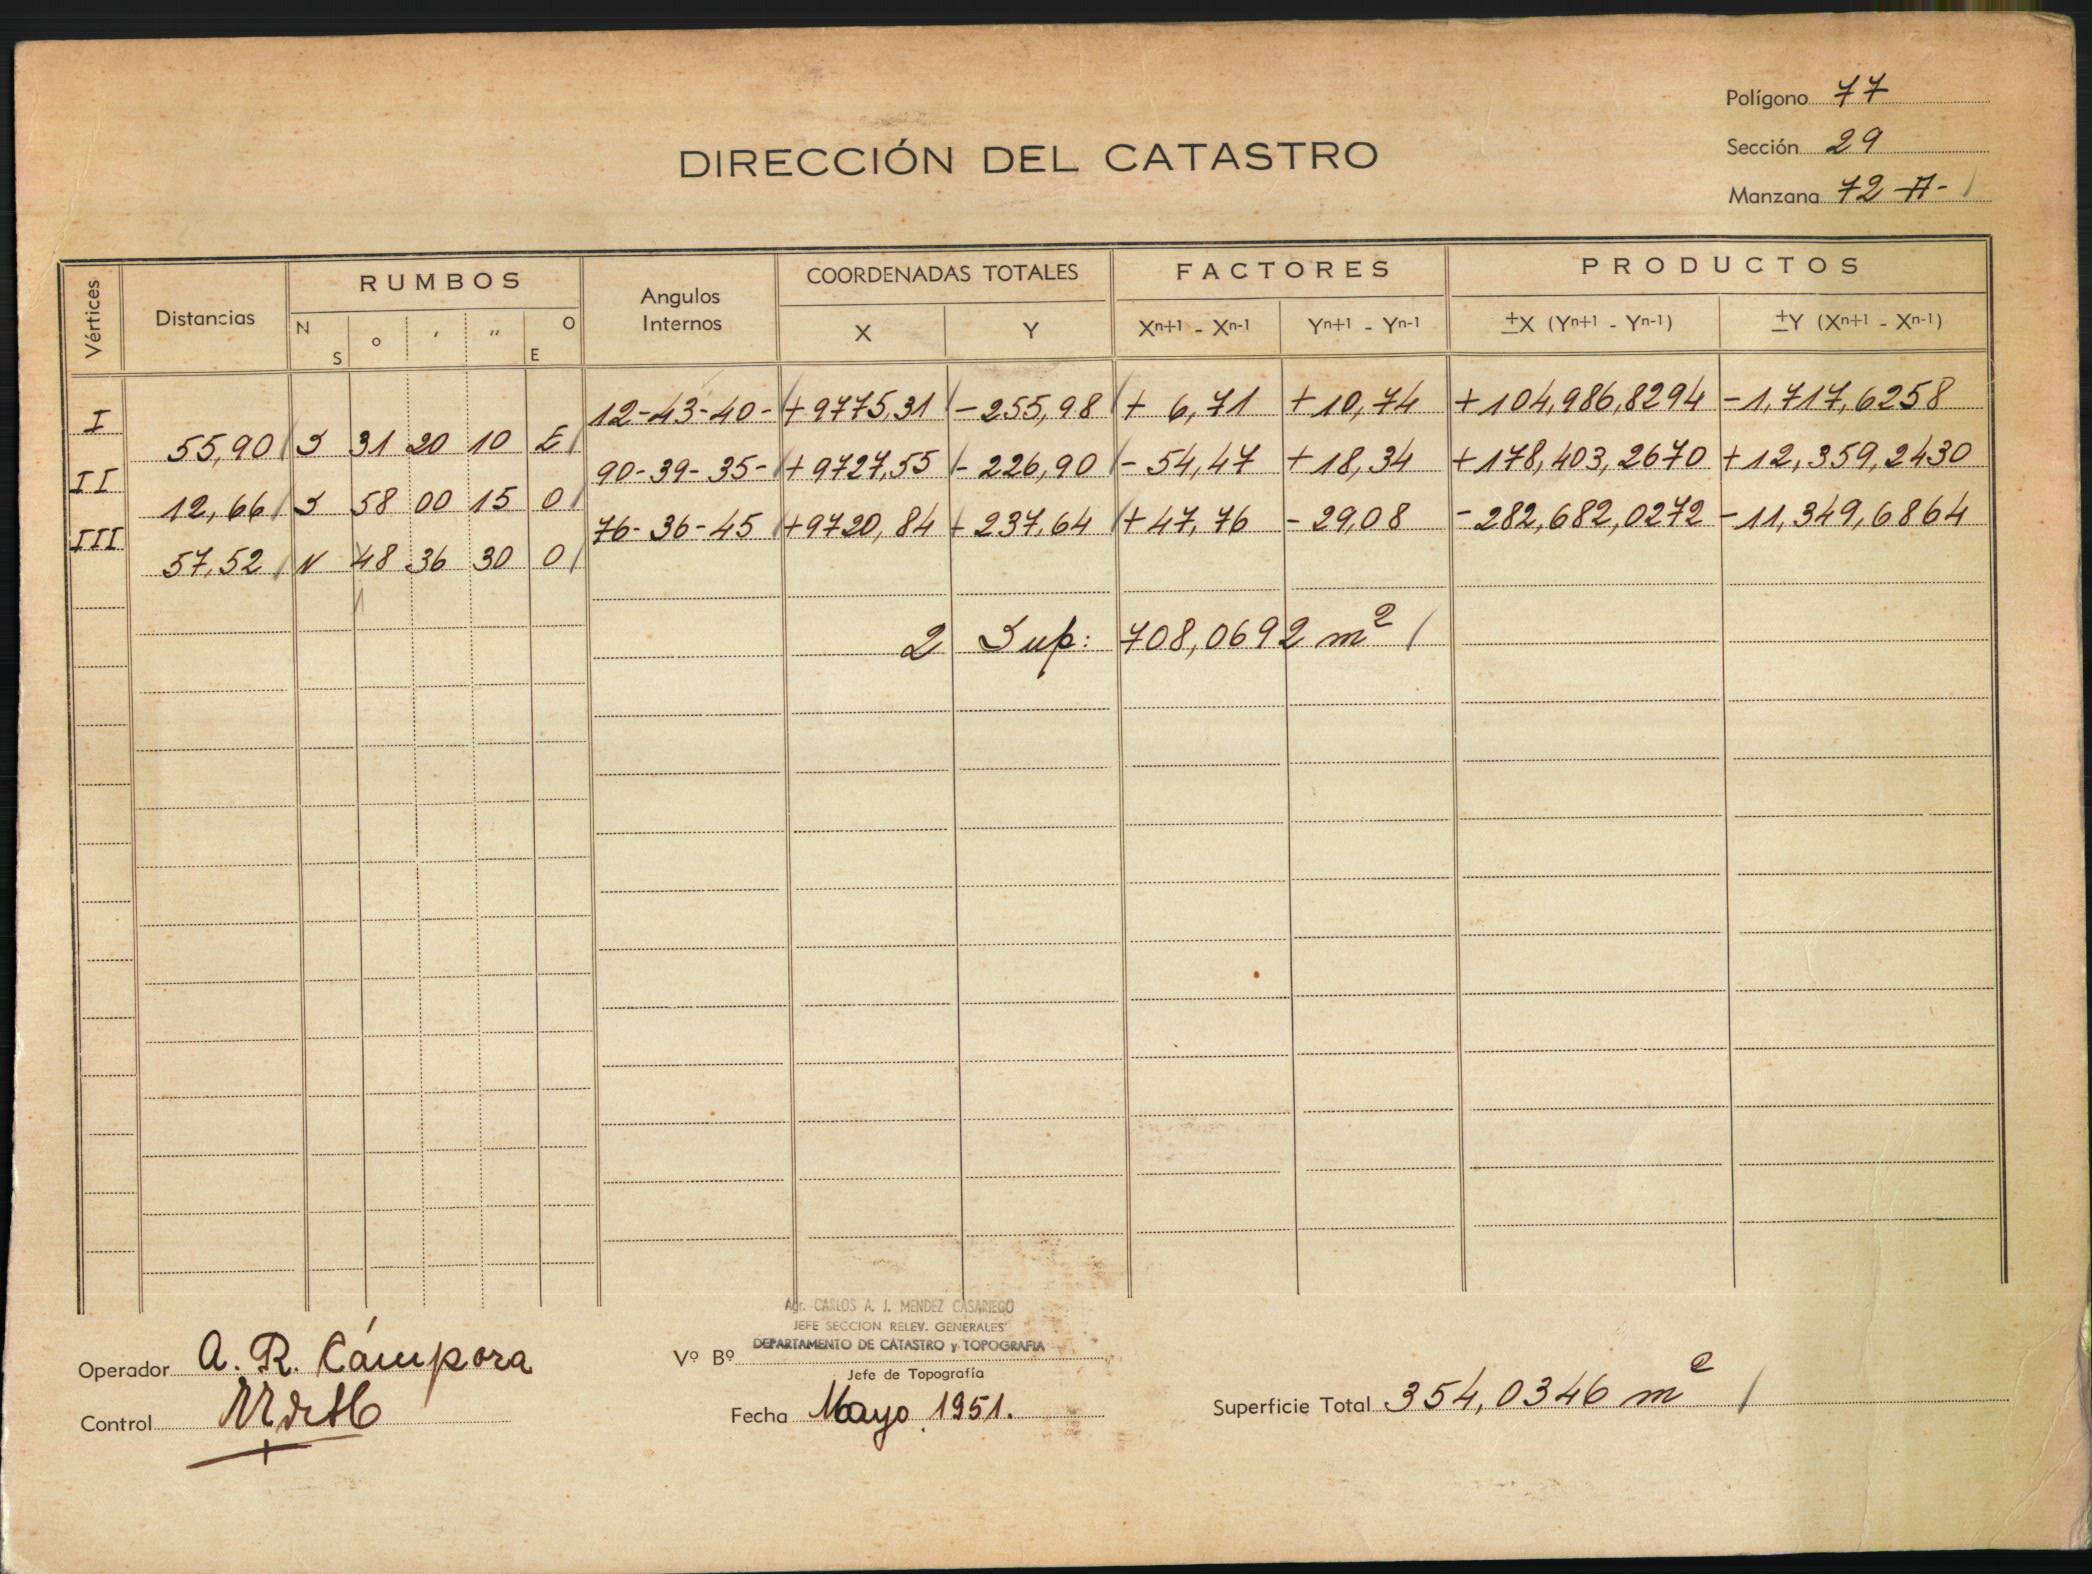 Polígono 77
DIRECCIÓN DEL CATASTRO
Sección 29
Manzana 72-A-
Vértices
Distancias
RUMBOS
N S
° ' "
O E
Angulos Internos
COORDENADAS TOTALES
X Y
FACTORES
Xn+1 - Xn-1 Yn+1 - Yn-1
PRODUCTOS
±X (Yn+1 - Yn-1) ±Y (Xn+1 - Xn-1)
I 12-43-40- +9775,31 -255,98 + 6,71 +10,74 +104,986,8294 -1,717,6258
55,90 S 31 20 10 E
II 90-39-35- +9727,55 - 226,90 - 54,47 +18,34 +178,403,2670 +12,359,2430
12,66 S 58 00 15 O
III 76-36-45 +9720,84 - 237,64 +47,76 -29,08 -282,682,0272 -11,349,6864
57,52 N 48 36 30 O
2 Sup: 708,0692 m2
Agr. CARLOS A. J. MENDEZ CASARIEGO
JEFE SECCION RELEV. GENERALES
DEPARTAMENTO DE CATASTRO y TOPOGRAFIA
Operador A. R. Cámpora
Vº Bº
Jefe de Topografía
Control
Fecha Mayo 1951.
Superficie Total 354,0346 m2